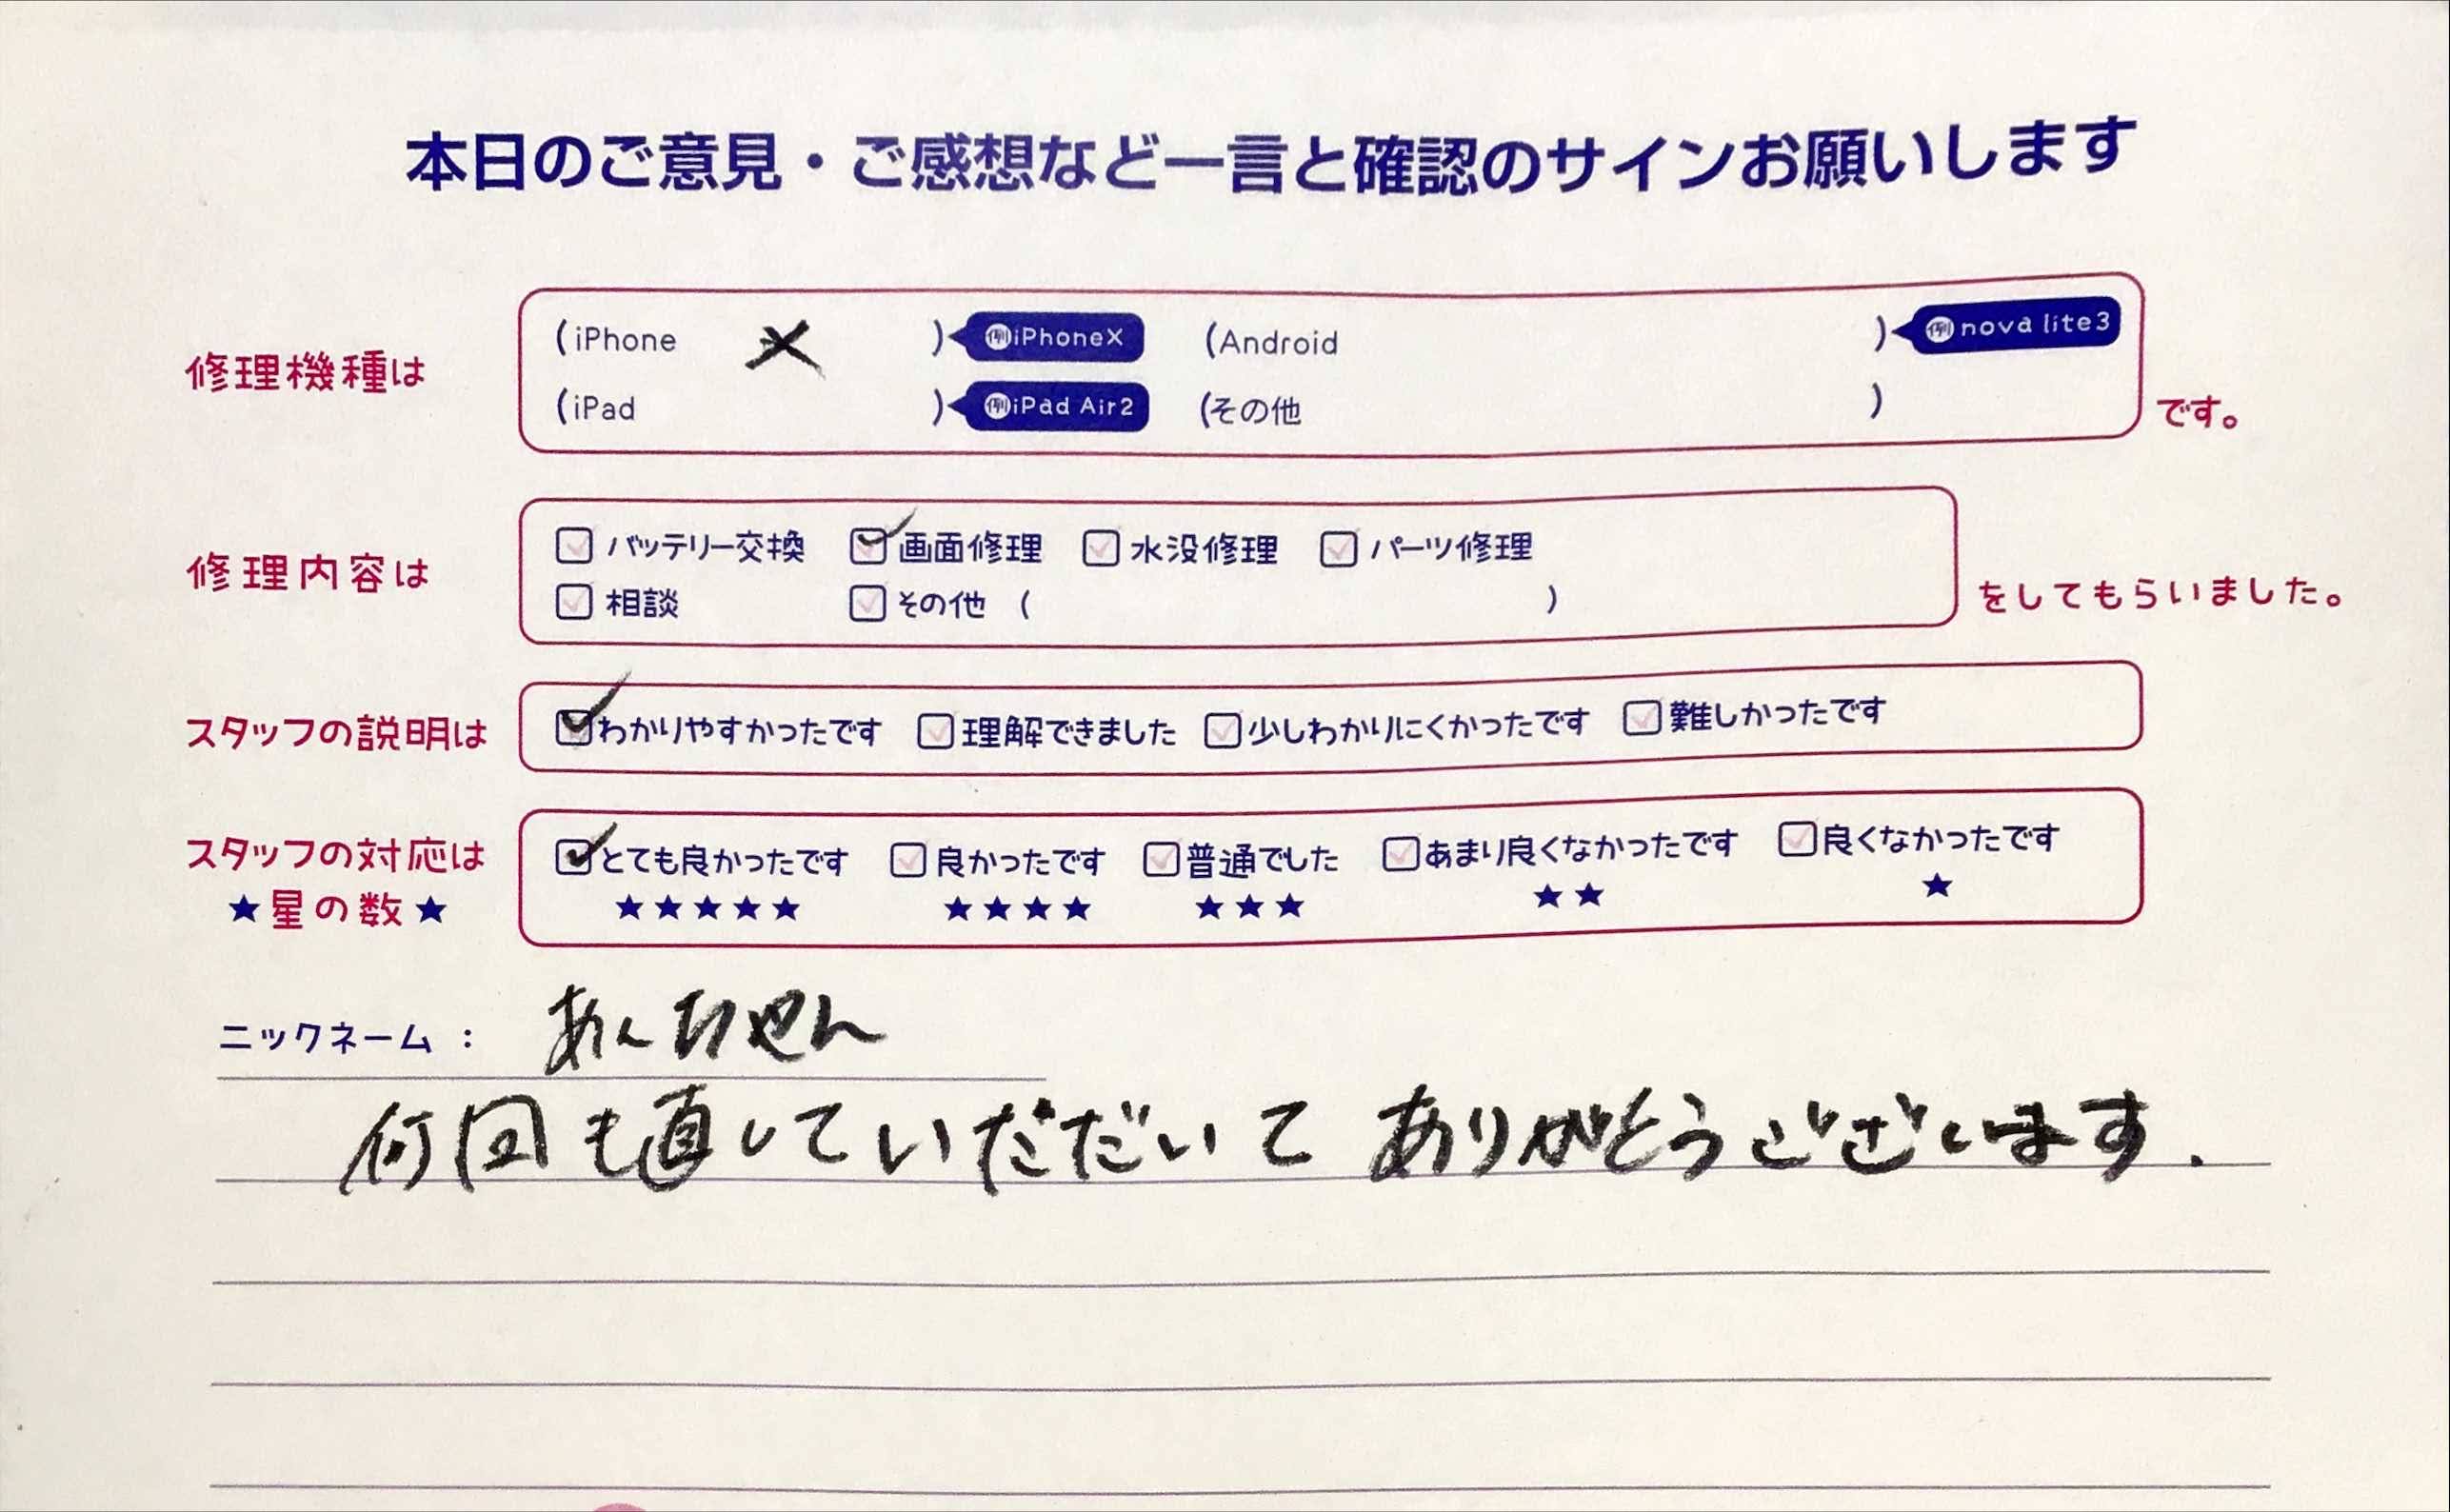 本日のご意見・ご感想など一言と確認のサインお願いします
修理機種は
(iPhone X ) 例iPhoneX (Android ) 例nova lite3
(iPad ) 例iPad Air2 (その他 )
です。
修理内容は
バッテリー交換 画面修理 水没修理 パーツ修理
相談 その他 ( )
をしてもらいました。
スタッフの説明は わかりやすかったです 理解できました 少しわかりにくかったです 難しかったです
スタッフの対応は とても良かったです 良かったです 普通でした あまり良くなかったです 良くなかったです
★星の数★ ★★★★★ ★★★★ ★★★ ★★ ★
ニックネーム：
何回も直していだだいて ありがとうございます.